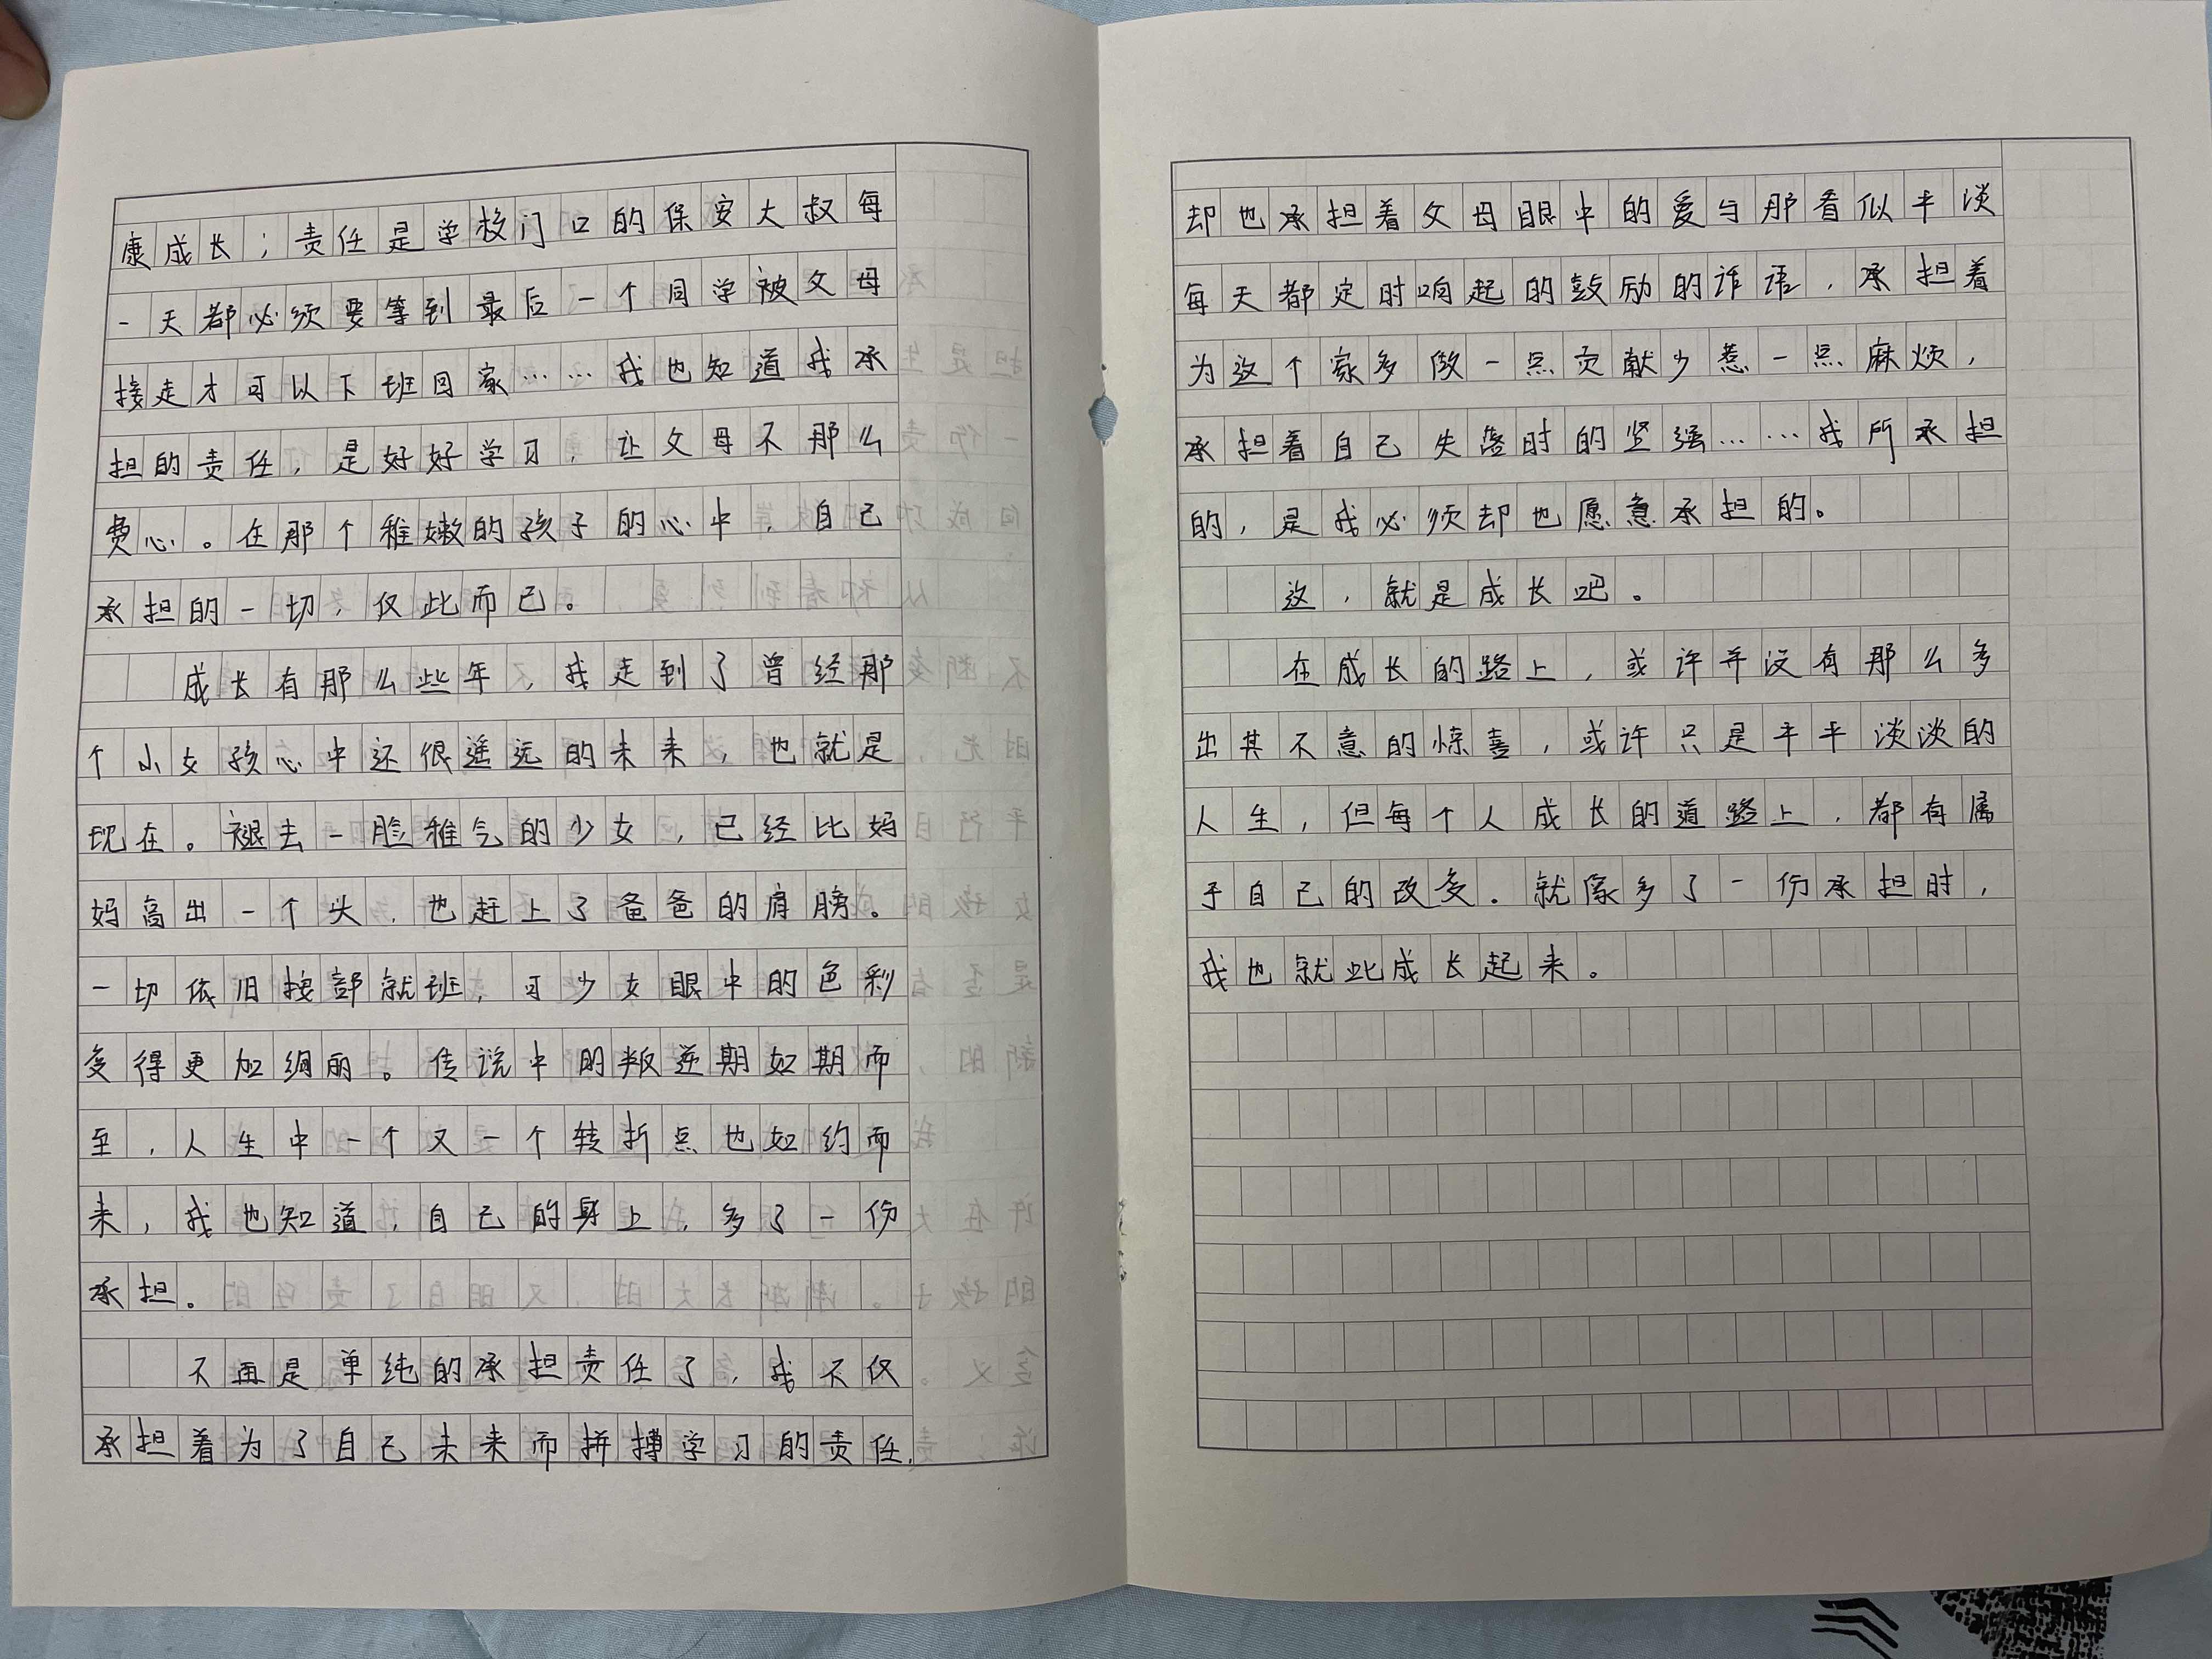 康成长；责任是学校门口的保安大叔每
一天都必须要等到最后一个同学被父母
接走才可以下班回家……我也知道我承
担的责任，是好好学习，让父母不那么
费心。在那个稚嫩的孩子的心中，自己
承担的一切，仅此而已。
成长有那么些年，我走到了曾经那
个小女孩心中还很遥远的未来，也就是
现在。褪去一脸稚气的少女，已经比妈
妈高出一个头，也赶上了爸爸的肩膀。
一切依旧按部就班，可少女眼中的色彩
变得更加绚丽。传说中的叛逆期如期而
至，人生中一个又一个转折点也如约而
来，我也知道，自己的身上，多了一份
承担。
不再是单纯的承担责任了，我不仅
承担着为了自己未来而拼搏学习的责任，
却也承担着父母眼中的爱与那看似平淡
每天都定时响起的鼓励的话语，承担着
为这个家多做一点贡献少惹一点麻烦，
承担着自己失落时的坚强……我所承担
的，是我必须却也愿意承担的。
这，就是成长吧。
在成长的路上，或许并没有那么多
出其不意的惊喜，或许只是平平淡淡的
人生，但每个人成长的道路上，都有属
于自己的改变。就像多了一份承担时，
我也就此成长起来。